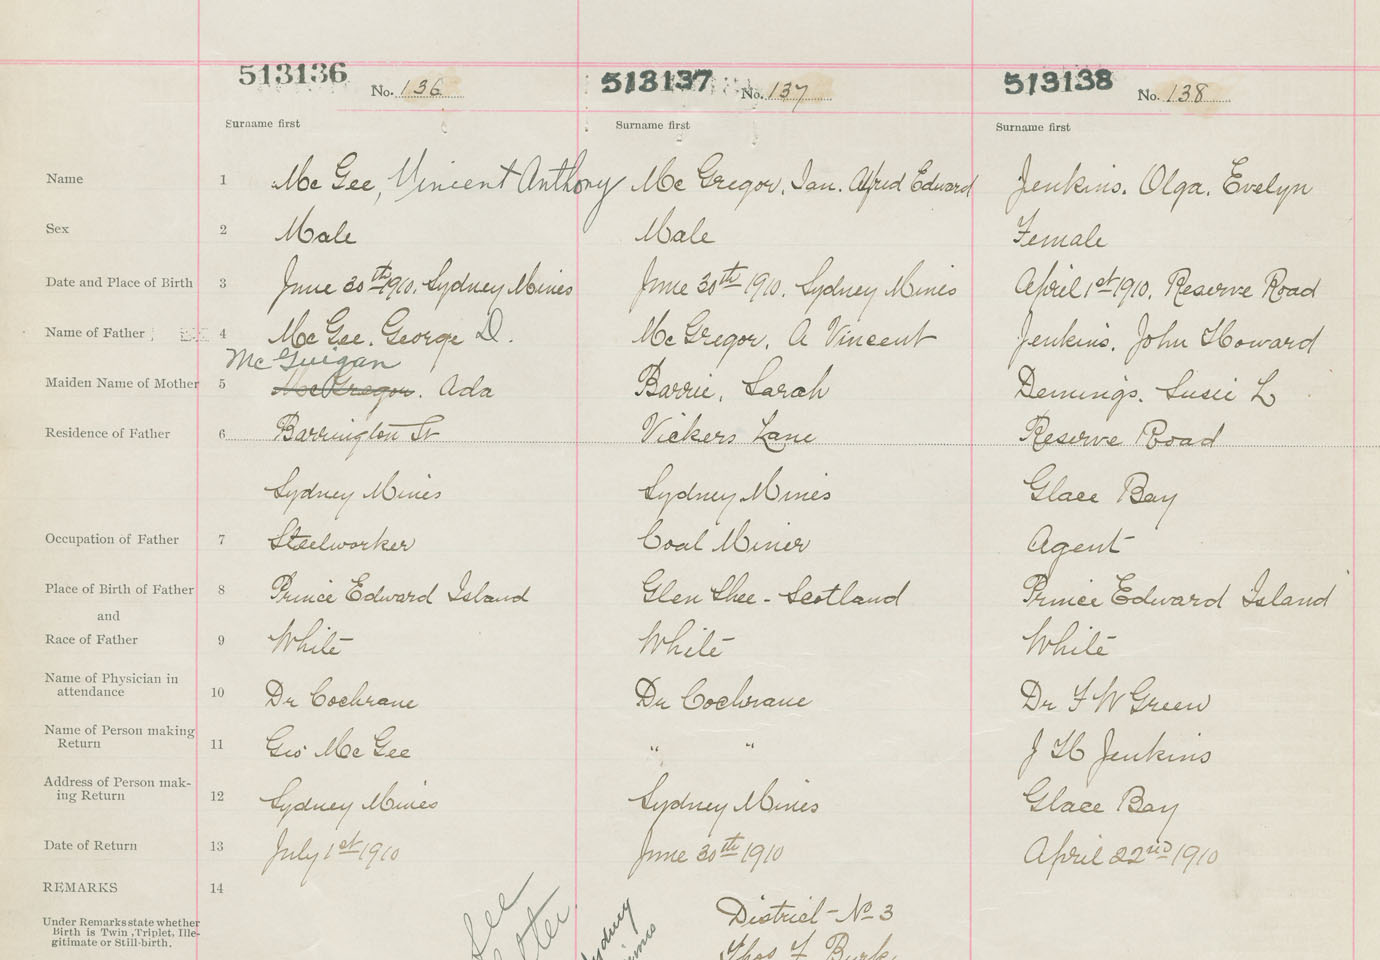 513136 No. 136 513137 No. 137 513138 No. 138
Surname first Surname first Surname first
Name 1 Mc Gee, Vincent Anthony Mc Gregor, Ian. Alfred Edward Jenkins. Olga. Evelyn
Sex 2 Male Male Female
Date and Place of Birth 3 June 30th 1910. Sydney Mines June 30th 1910. Sydney Mines April 1st 1910. Reserve Road
Name of Father 4 Mc Gee. George D. Mc Gregor. A Vincent Jenkins. John Howard
Mc Guigan
Maiden Name of Mother 5 McGregor. Ada Barrie, Sarah Demings. Susie L
Residence of Father 6 Barrington St Vickers Lane Reserve Road
Sydney Mines Sydney Mines Glace Bay
Occupation of Father 7 Steelworker Coal Miner Agent
Place of Birth of Father 8 Prince Edward Island Glen Shee - Scotland Prince Edward Island
and
Race of Father 9 White White White
Name of Physician in
attendance 10 Dr Cochrane Dr Cochrane Dr F W Green
Name of Person making
Return 11 Geo McGee " " J H Jenkins
Address of Person mak-
ing Return 12 Sydney Mines Sydney Mines Glace Bay
Date of Return 13 July 1st 1910 June 30th 1910 April 22nd 1910
REMARKS 14
Under Remarks state whether
Birth is Twin, Triplet, Ille-
gitimate or Still-birth.
See
Sydney
District - No 3
Thos F Burke